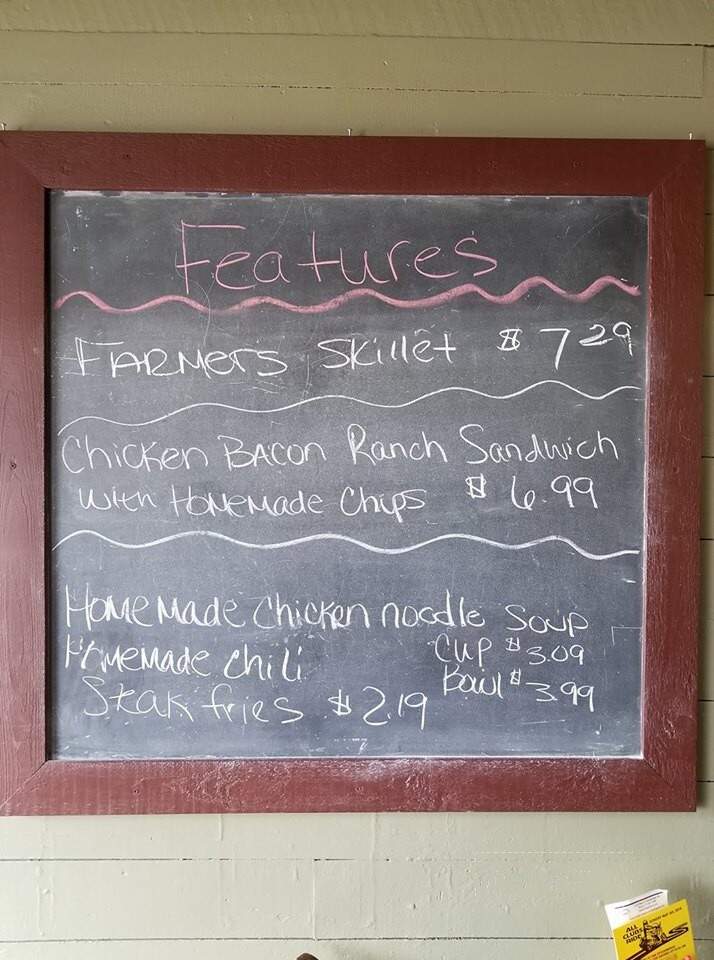 Features
FARMERS Skillet $ 7 29
Chicken BACON Ranch Sandwich
with Homemade Chips $ 6.99
Homemade Chicken noodle Soup
Homemade Chili
Cup $ 3.09
Bowl $ 3.99
Steak fries $ 2.19
ALL
CLUBS
RIDE